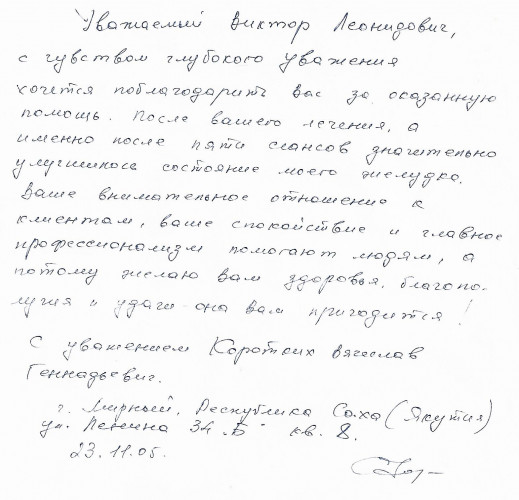 Уважаемый Виктор Леонидович,
с чувством глубокого уважения
хочется поблагодарить Вас за оказанную
помощь. После вашего лечения, а
именно после пяти сеансов значительно
улучшилось состояние моего желудка.
Ваше внимательное отношение к
клиентам, ваше спокойствие и главное
профессионализм помогают людям, а
потому желаю Вам здоровья, благопо-
лучия и удачи она Вам пригодится!
С уважением Коротких Вячеслав
Геннадьевич.
г. Мирный, Республика Саха (Якутия)
ул. Ленина 34 „Б" кв. 8.
23.11.05.